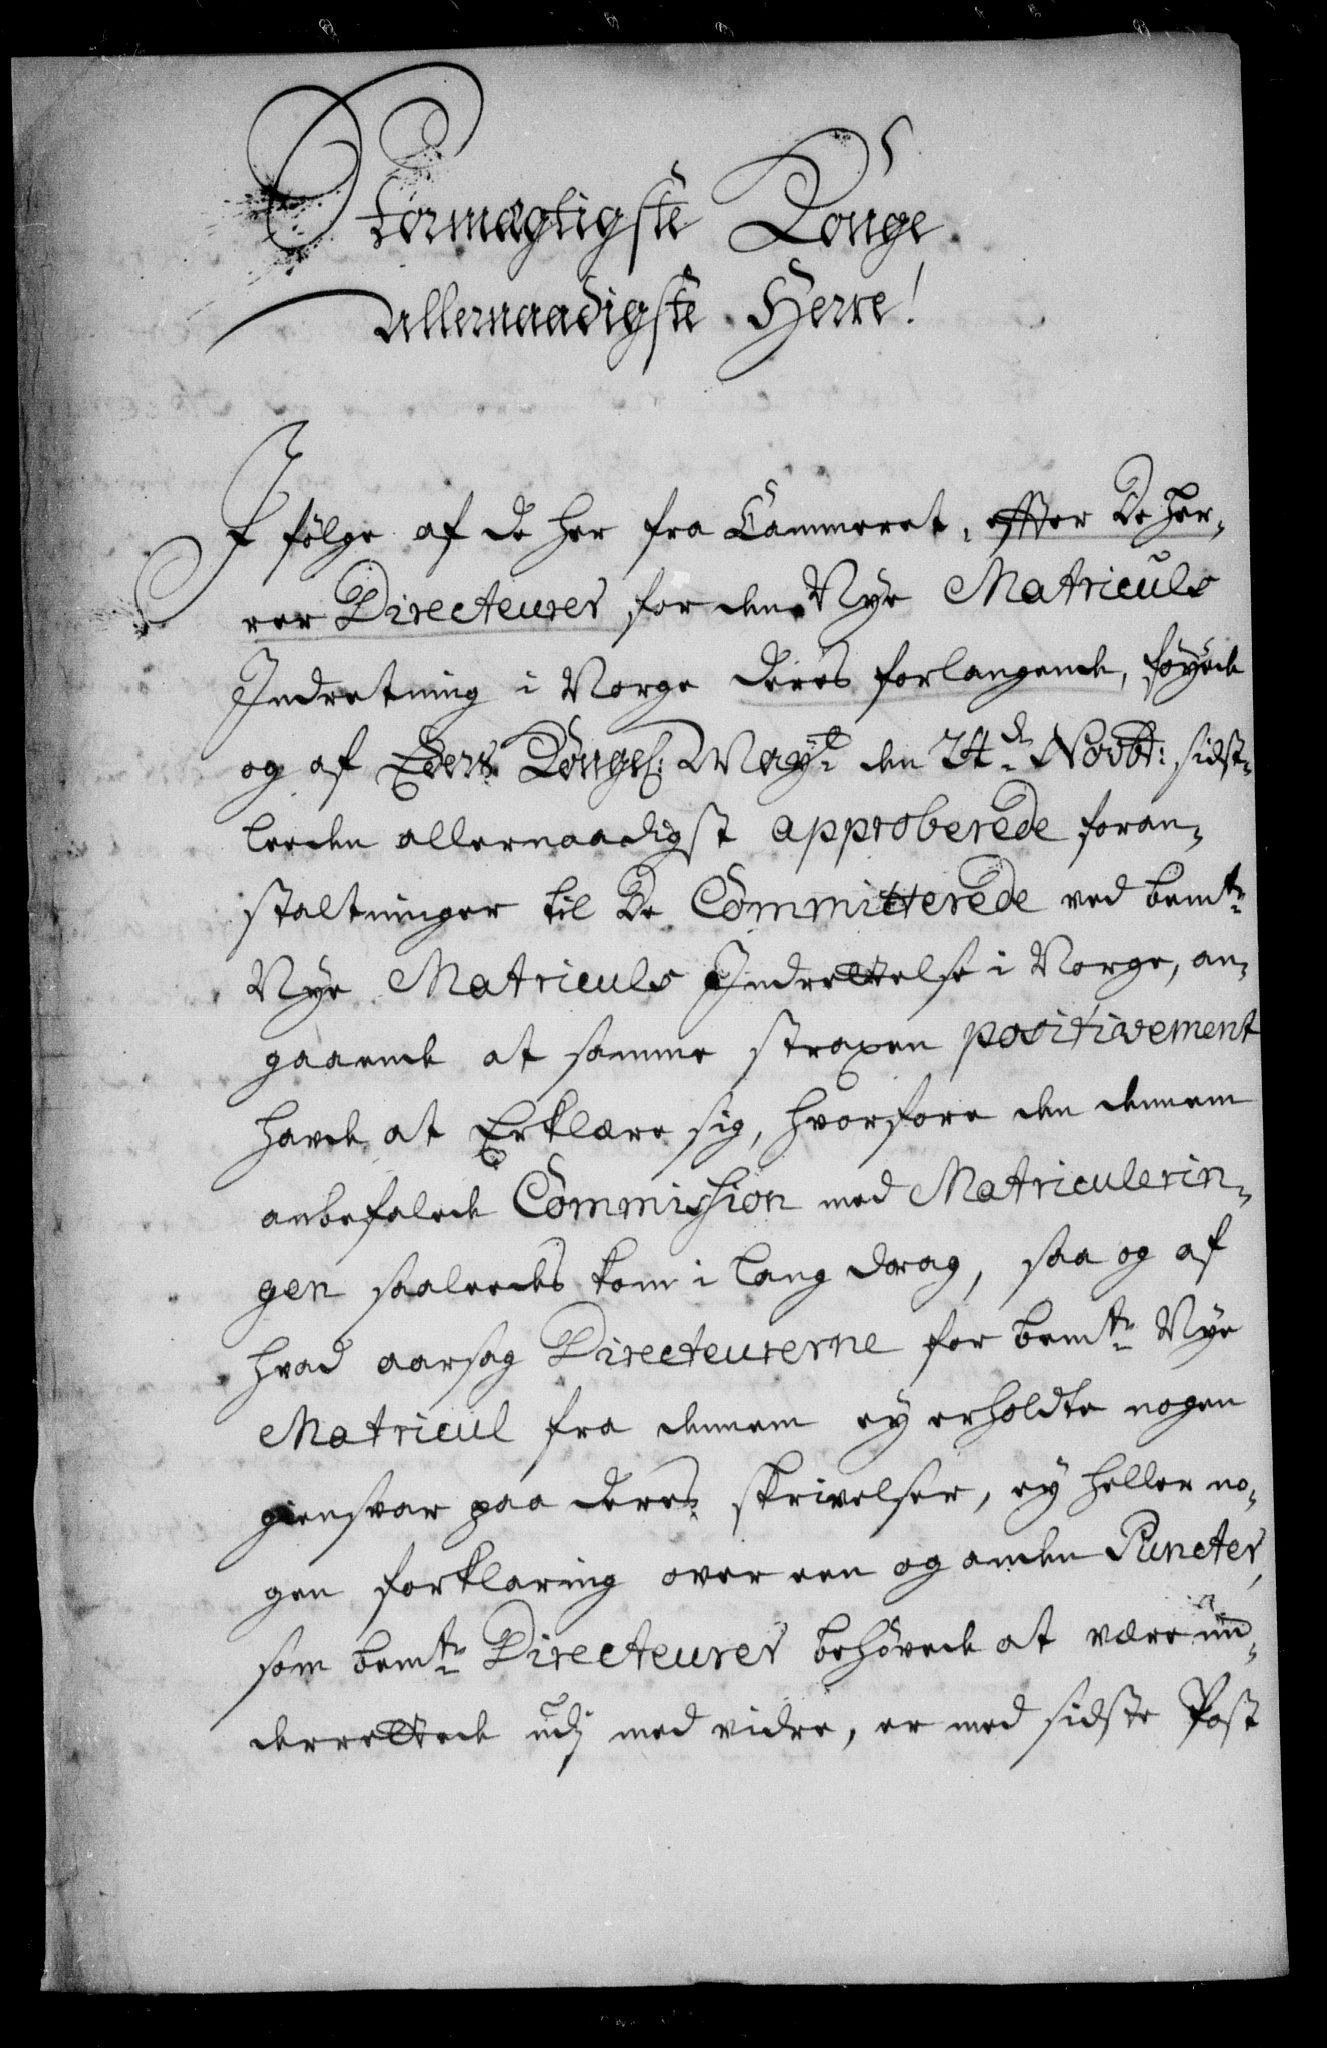 Stormægtigste Konge
Allernaadigste Herre!
I følge af de her fra Cammeret, effter De Her-
rer Directeurer for den Nye Matriculs
Indretning i Norge deres forlangende, føyede
og af Eders Kongel: May:t den 24.de Novbr: sidst-
leeden allernaadigst approberede foran-
staltninger til De Committerede ved bem:te
Nye Matriculs Indrettelse i Norge, an-
gaaende at samme straxen positivement
havde at Erklære sig, hvorfore den dennem
anbefalede Commission med Matriculerin-
gen saaledes kom i lang drag, saa og af
hvad aarsag Directeurerne for bem:te Nye
Matricul fra dennem ey erholdte nogen
giensvar paa deres skrivelser, ey heller no-
gen forklaring over een og anden Puncter,
som bem:te Directeurer behøvede at være un-
derrettede udj med vidre, er med sidste Post